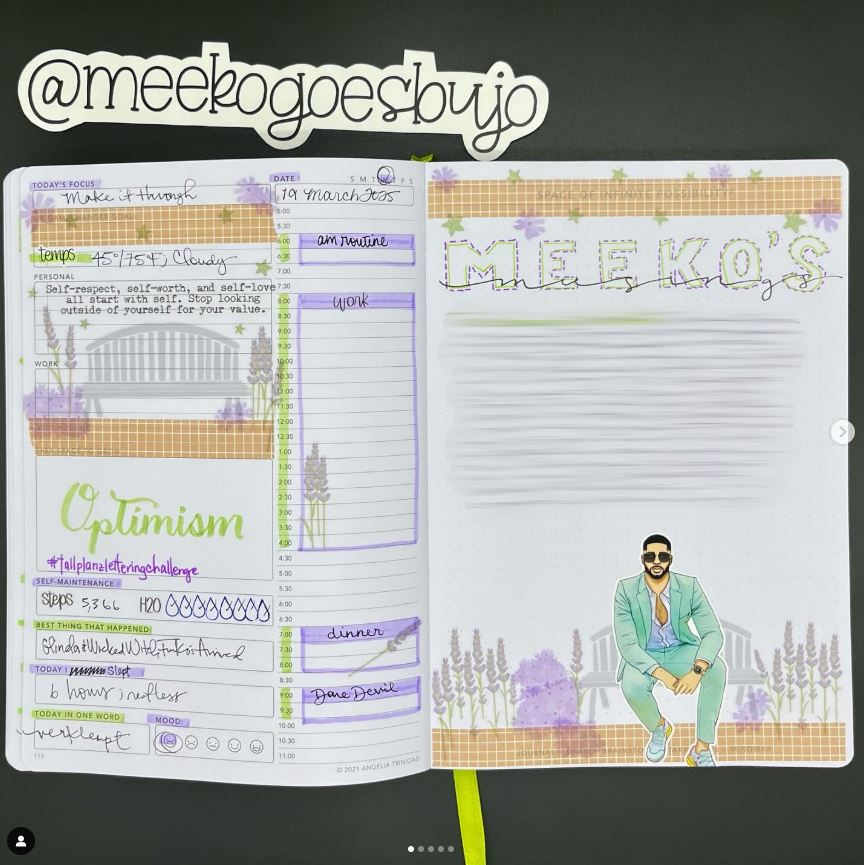 @meekogoesbujo
TODAY'S FOCUS
Make it through
temps 45°/75°F; Cloudy
PERSONAL
Self-respect, self-worth, and self-love
all start with self. Stop looking
outside of yourself for your value.
WORK
Optimism
#tallplanzletteringchallenge
SELF-MAINTENANCE
steps 5,366 H20
BEST THING THAT HAPPENED:
Glinda & Wicked Witch Funko's Arrived
TODAY I Slept
6 hours; restless
TODAY IN ONE WORD
verklempt
MOOD:
118
DATE S M T W T F S
19 March 2025
5:00
5:30
6:00 am routine
6:30
7:00
7:30
8:00 work
8:30
9:00
9:30
10:00
10:30
11:00
11:30
12:00
12:30
1:00
1:30
2:00
2:30
3:00
3:30
4:00
4:30
5:00
5:30
6:00
6:30
7:00 dinner
7:30
8:00
8:30
9:00 Dare Devil
9:30
10:00
10:30
11:00
© 2021 ANGELIA TRINIDAD
SPACE OF INFINITE POSSIBILITY
MEEKO'S
musings